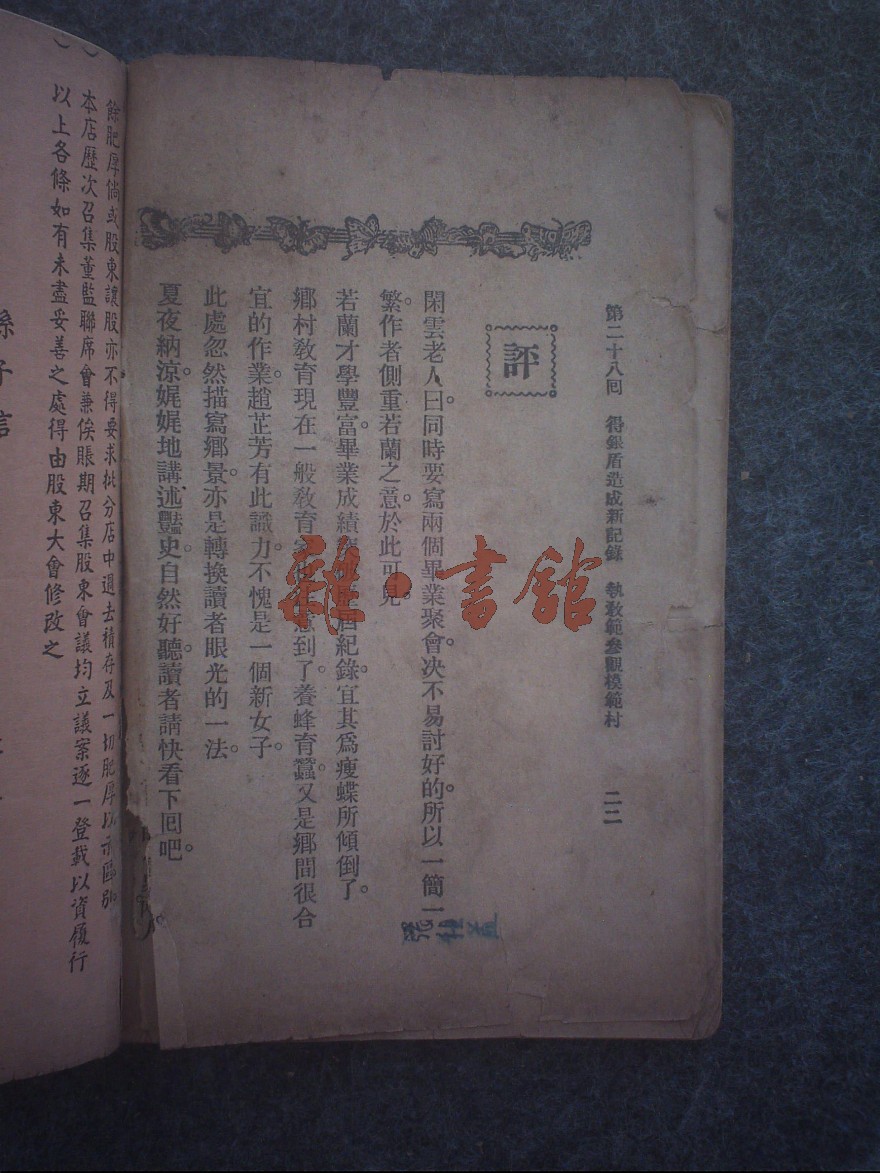 第二十八回　得銀盾造成新記錄　執敎範參觀模範村　二二
評
閑雲老人曰。同時要寫兩個畢業聚會。决不易討好的。所以一簡一
繁。作者側重若蘭之意。於此可見。
若蘭才學豐富。畢業成績紀錄。宜其爲瘦蝶所傾倒了。
鄉村敎育。現在一般敎育意到了。養蜂育蠶。又是鄉間很合
宜的作業。趙芷芳有此識力。不愧是一個新女子。
此處忽然描寫鄉景。亦是轉換讀者眼光的一法。
夏夜納涼。娓娓地講述豔史。自然好聽。讀者請快看下回吧。
雜·書館
餘肥厚倘或股東讓股亦不得要求批分店中過去積存及一切肥厚以示區別
本店歷次召集董監聯席會兼俟賬期召集股東會議均立議案逐一登載以資履行
以上各條如有未盡妥善之處得由股東大會修改之
孫子信